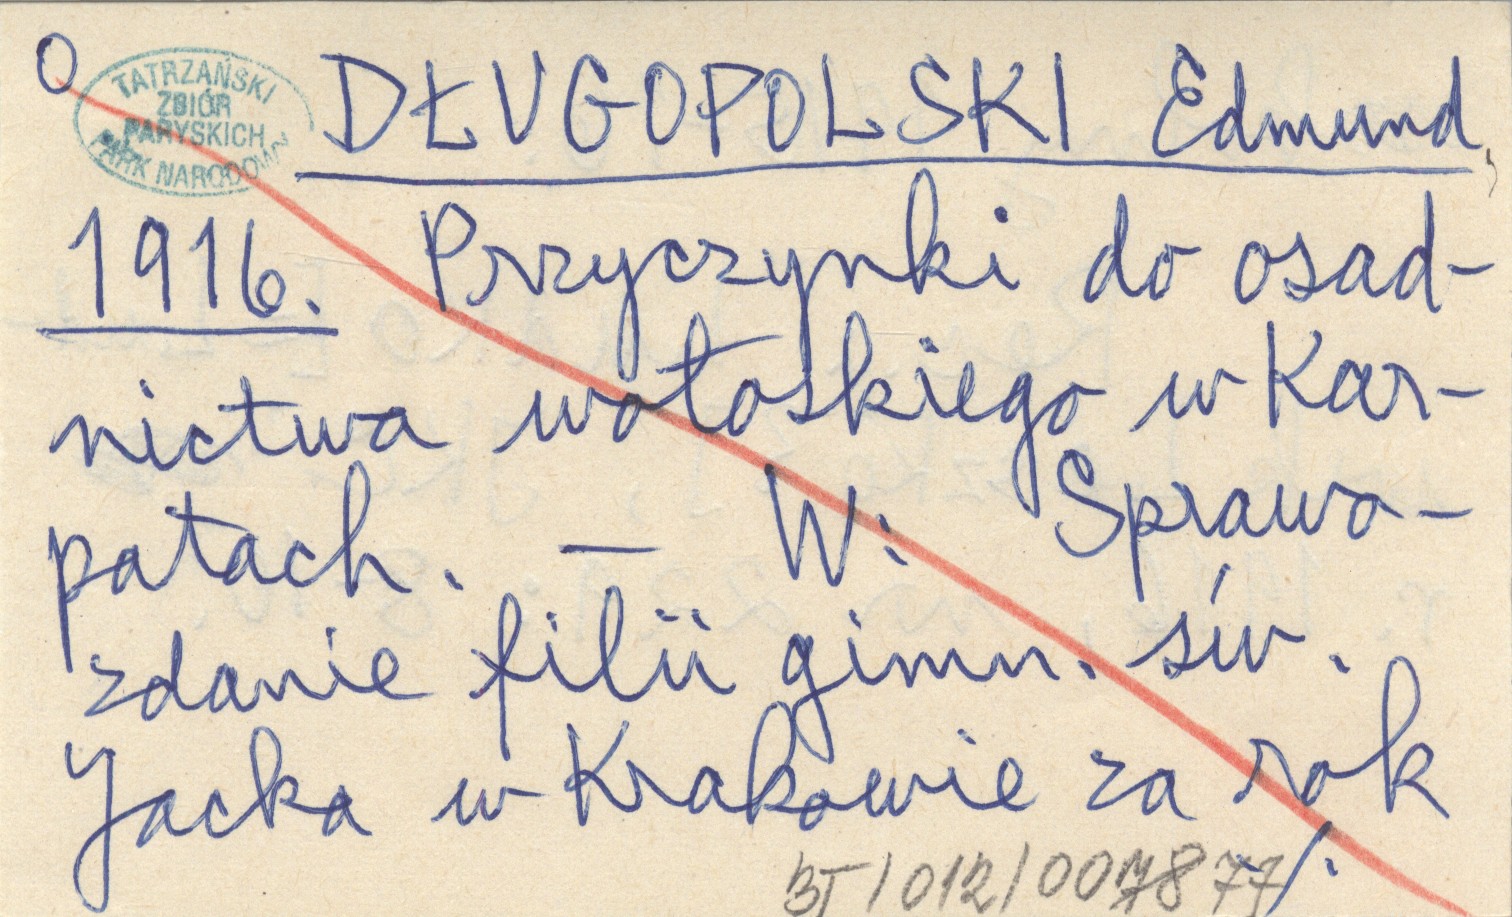 O
TATRZAŃSKI
ZBIÓR
PARYSKICH
PARK NARODOWY
DŁUGOPOLSKI Edmund,
1916. Przyczynki do osad-
nictwa wołoskiego w Kar-
patach. — W: Sprawo-
zdanie filii gimn. św.
Jacka w Krakowie za rok
./.
BT/012/007877